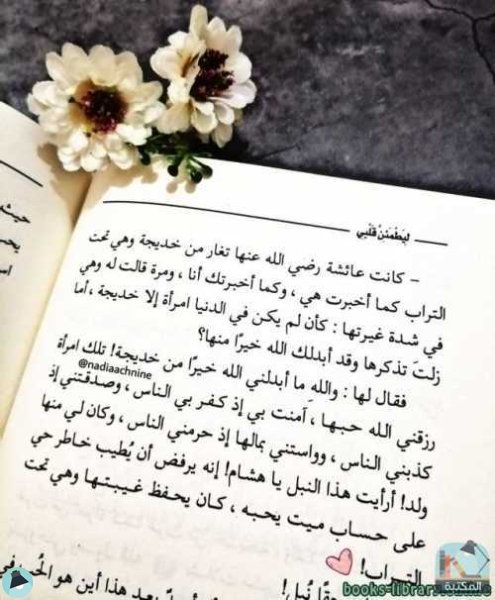 ليطمئن قلبي
– كانت عائشة رضي الله عنها تغار من خديجة وهي تحت
التراب كما أخبرت هي ، وكما أخبرتك أنا ، ومرة قالت له وهي
في شدة غيرتها : كأن لم يكن في الدنيا امرأة إلا خديجة ، أما
زلتَ تذكرها وقد أبدلك الله خيرًا منها؟
فقال لها : واللهِ ما أبدلني الله خيرًا من خديجة! تلك امرأة
@nadiaachnine
رزقني الله حبها ، آمنت بي إذ كفر بي الناس ، وصدقتني إذ
كذبني الناس ، وواستني بمالها إذ حرمني الناس ، وكان لي منها
ولد! أرأيت هذا النبل يا هشام! إنه يرفض أن يُطيب خاطر حي
على حساب ميت يحبه ، كان يحفظ غيبتها وهي تحت
التراب!
حقًا نُبل!
بعد هذا أين هو الحُب في
المكتبة